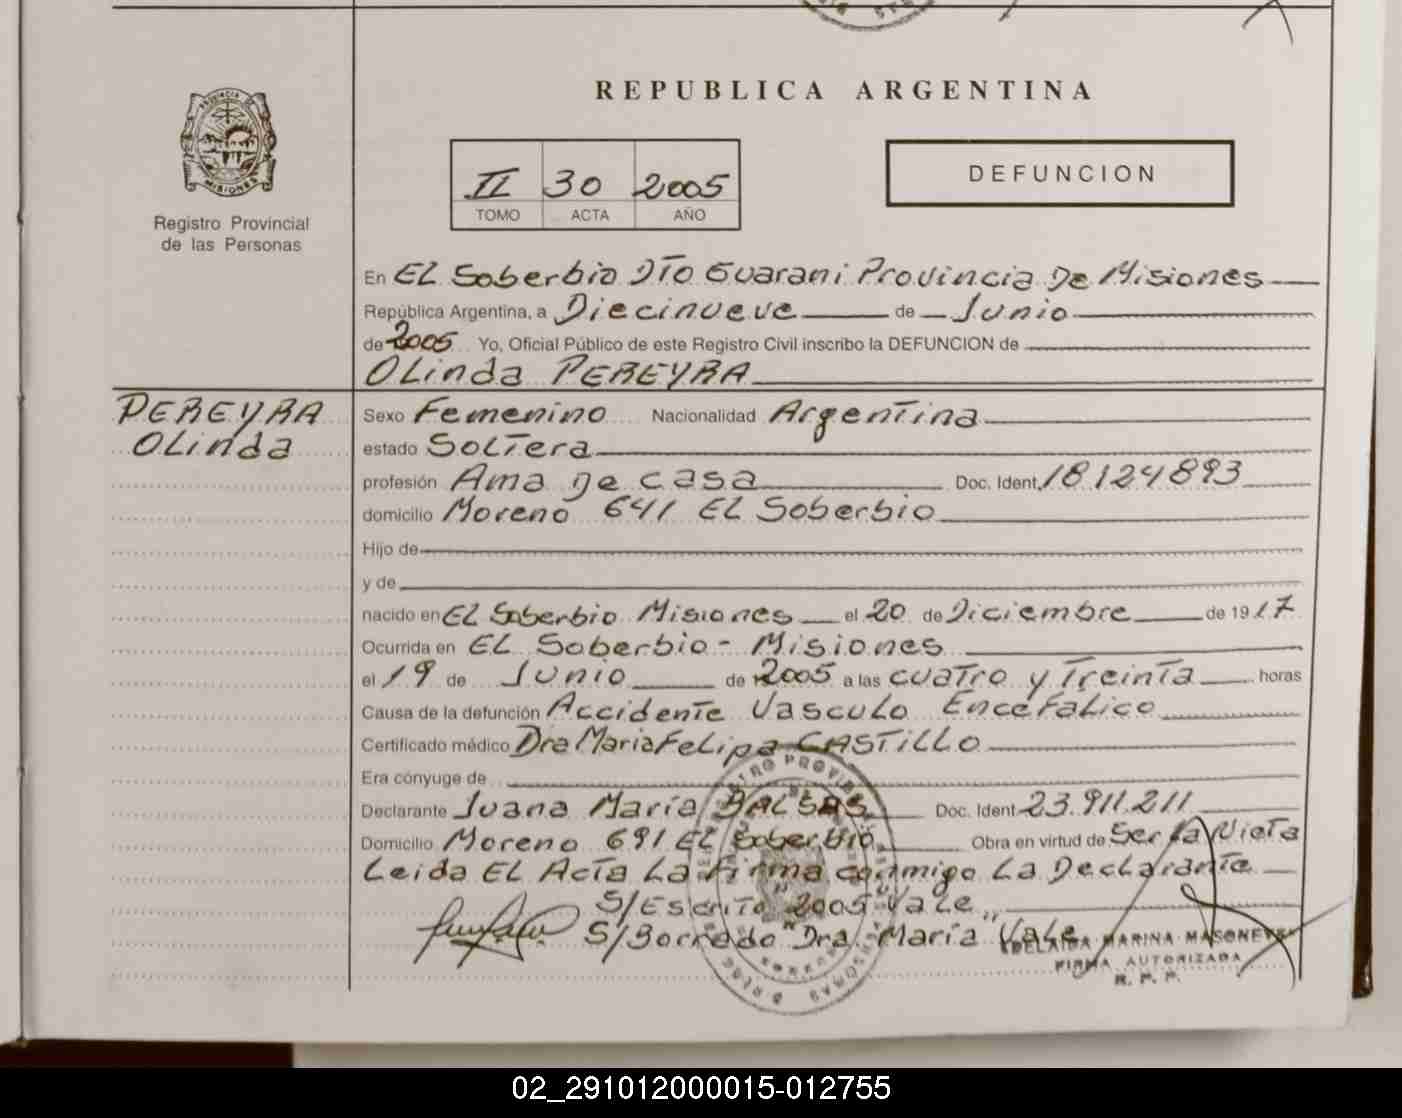 REPUBLICA ARGENTINA
PROVINCIA DE
MISIONES
Registro Provincial
de las Personas
II 30 2005
TOMO ACTA AÑO
DEFUNCION
En EL Soberbio DTo Guarani Provincia De Misiones
República Argentina, a Diecinueve de Junio
de 2005 Yo, Oficial Público de este Registro Civil inscribo la DEFUNCION de
OLinda PEREYRA
PEREYRA
OLinda
Sexo Femenino Nacionalidad Argentina
estado Soltera
profesión Ama De casa Doc. Ident. 18.124.893
domicilio Moreno 641 EL Soberbio
Hijo de
y de
nacido en EL Soberbio Misiones el 20 de Diciembre de 1917
Ocurrida en EL Soberbio - Misiones
el 19 de Junio de 2005 a las cuatro y Treinta horas
Causa de la defunción Accidente Vasculo Encefalico
Certificado médico Dra Maria Felipa CASTILLO
Era cónyuge de
Declarante Juana Maria BALSAS Doc. Ident. 23.911.211
Domicilio Moreno 691 EL Soberbio Obra en virtud de Ser La Nieta
Leida EL Acta La Firma conmigo La Declarante
S/Escrito 2005 Vale
S/Borrado "Dra. Maria Vale
MARINA
FIRMA AUTORIZADA
R. P. P.
02_291012000015-012755